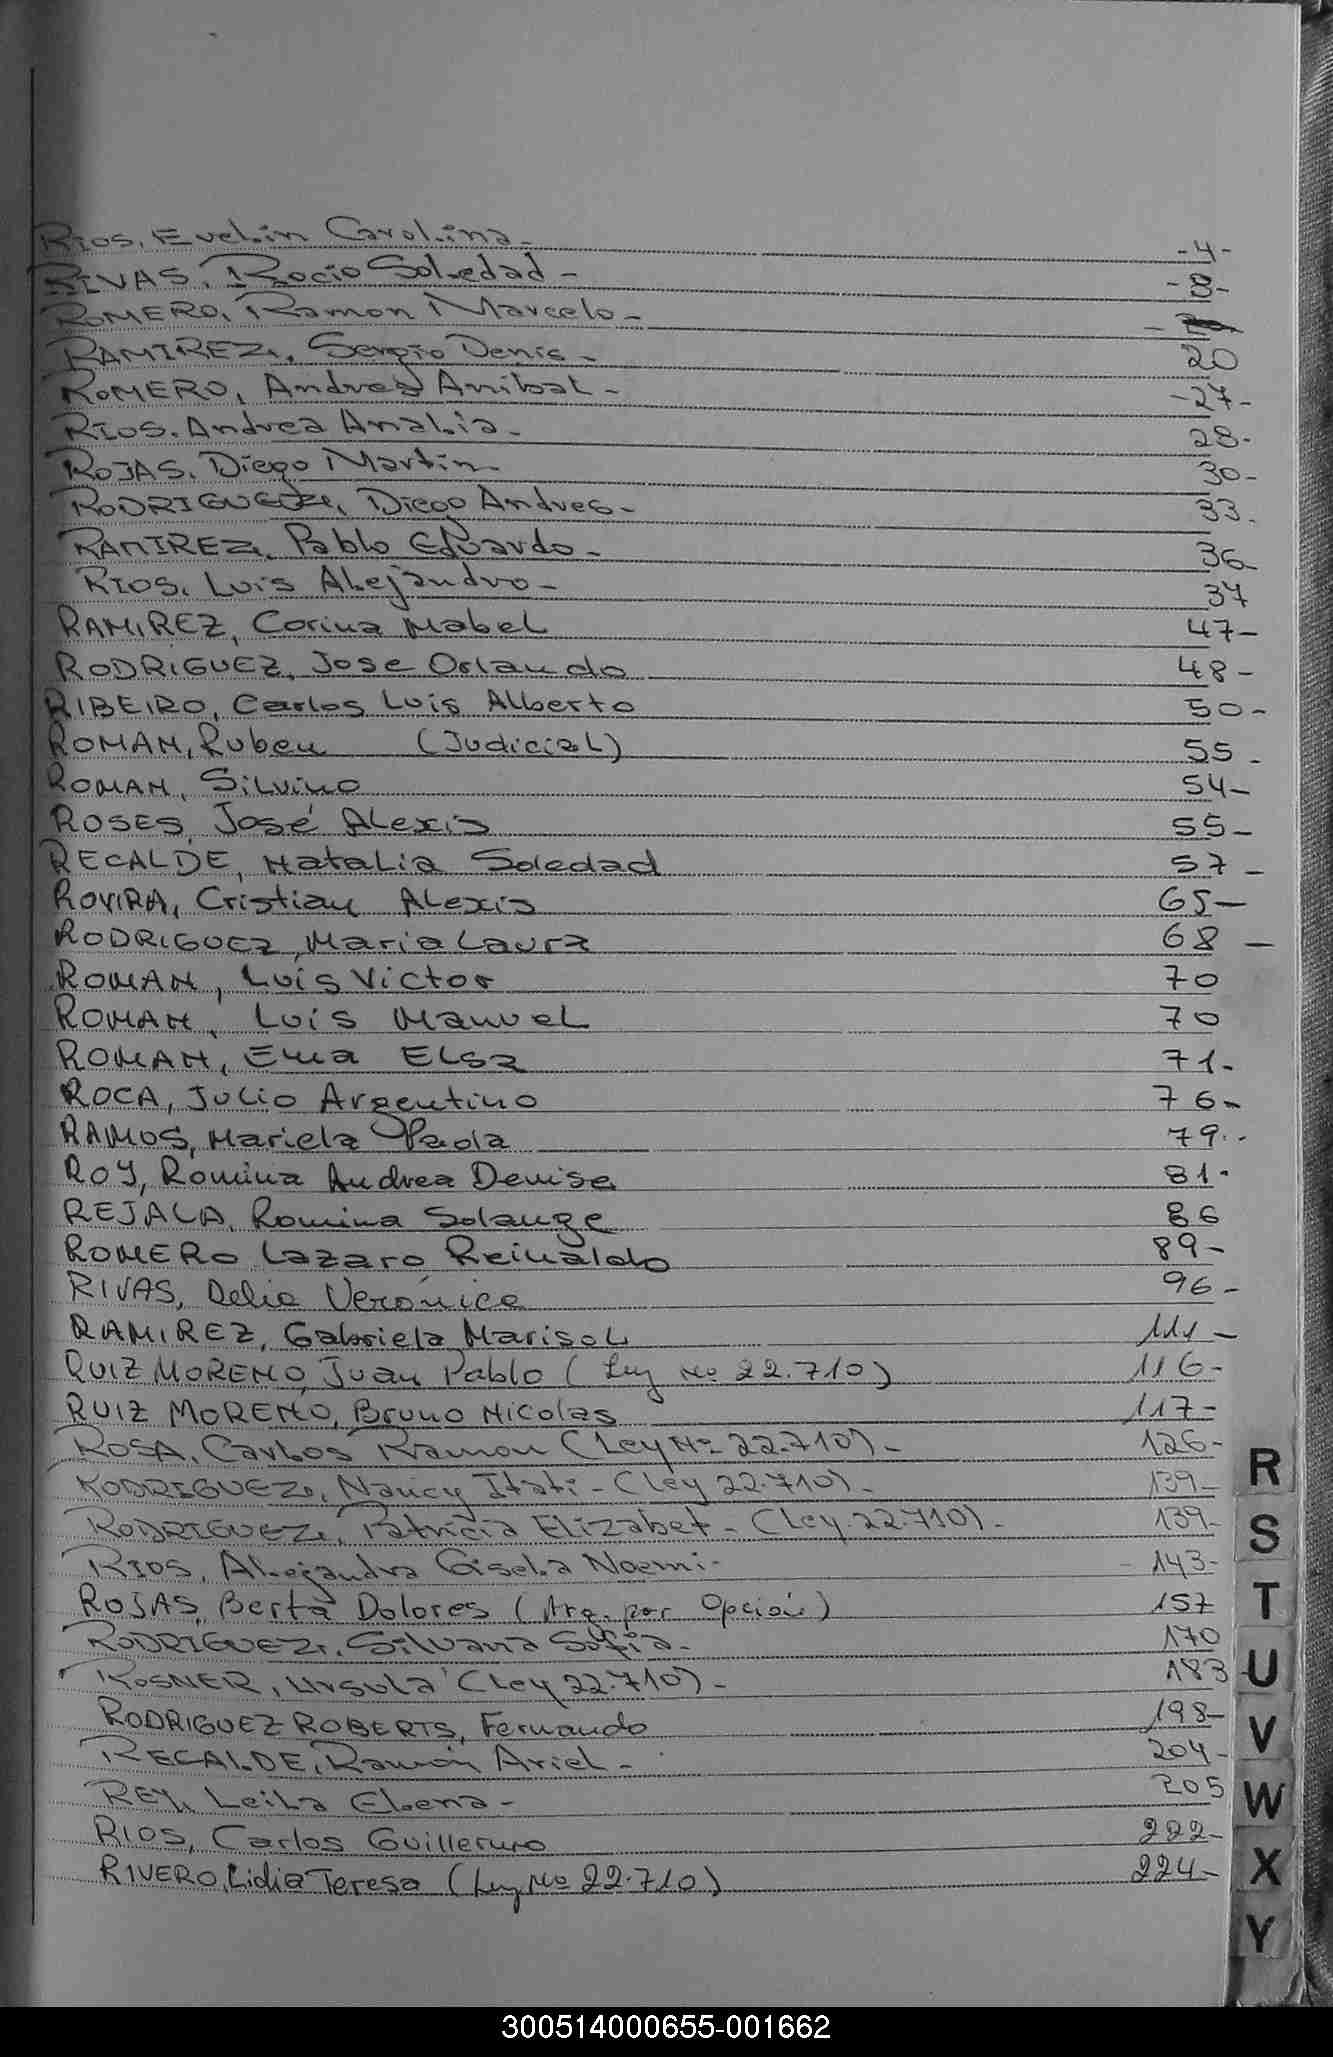 RIOS, Evelin Carolina- -4-
RIVAS, Rocio Soledad- -8-
ROMERO, Ramon Marcelo-
RAMIREZ, Sergio Denis- 20
ROMERO, Andres Anibal- -27-
RIOS, Andrea Analia- 28-
ROJAS, Diego Martin- 30-
RODRIGUEZ, Diego Andres- 33-
RAMIREZ, Pablo Eduardo- 36
RIOS, Luis Alejandro- 37
RAMIREZ, Corina Mabel 47-
RODRIGUEZ, Jose Orlando 48-
RIBEIRO, Carlos Luis Alberto 50-
ROMAN, Ruben (Judicial) 55-
ROMAN, Silvino 54-
ROSES, José Alexis 55-
RECALDE, Natalia Soledad 57-
ROVIRA, Cristian Alexis 65-
RODRIGUEZ, Maria Laura 68-
ROMAN, Luis Victor 70
ROMAN, Luis Manuel 70
ROMAN, Ema Elsa 71-
ROCA, Julio Argentino 76-
RAMOS, Mariela Paola 79-
ROY, Romina Andrea Denise 81-
REJALA, Romina Solange 86
ROMERO Lazaro Reinaldo 89-
RIVAS, Delia Verónica 96-
RAMIREZ, Gabriela Marisol 111-
RUIZ MORENO, Juan Pablo (Ley No 22.710) 116-
RUIZ MORENO, Bruno Nicolas 117-
ROSA, Carlos Ramon (Ley Nº 22.710)- 126-
RODRIGUEZ, Nancy Itati- (Ley 22.710)- 139-
RODRIGUEZ, Patricia Elizabet- (Ley 22.710)- 139-
RIOS, Alejandra Gisela Noemi- -143-
ROJAS, Berta Dolores (Arg. por Opción) 157
RODRIGUEZ, Silvana Sofia- 170
ROSNER, Ursula (Ley 22.710)- 183
RODRIGUEZ ROBERTS, Fernando 198-
RECALDE, Ramón Ariel- 204-
REY, Leila Elena- 205
RIOS, Carlos Guillermo 222-
RIVERO, Lidia Teresa (Ley No 22.710) 224-
R
S
T
U
V
W
X
Y
300514000655-001662